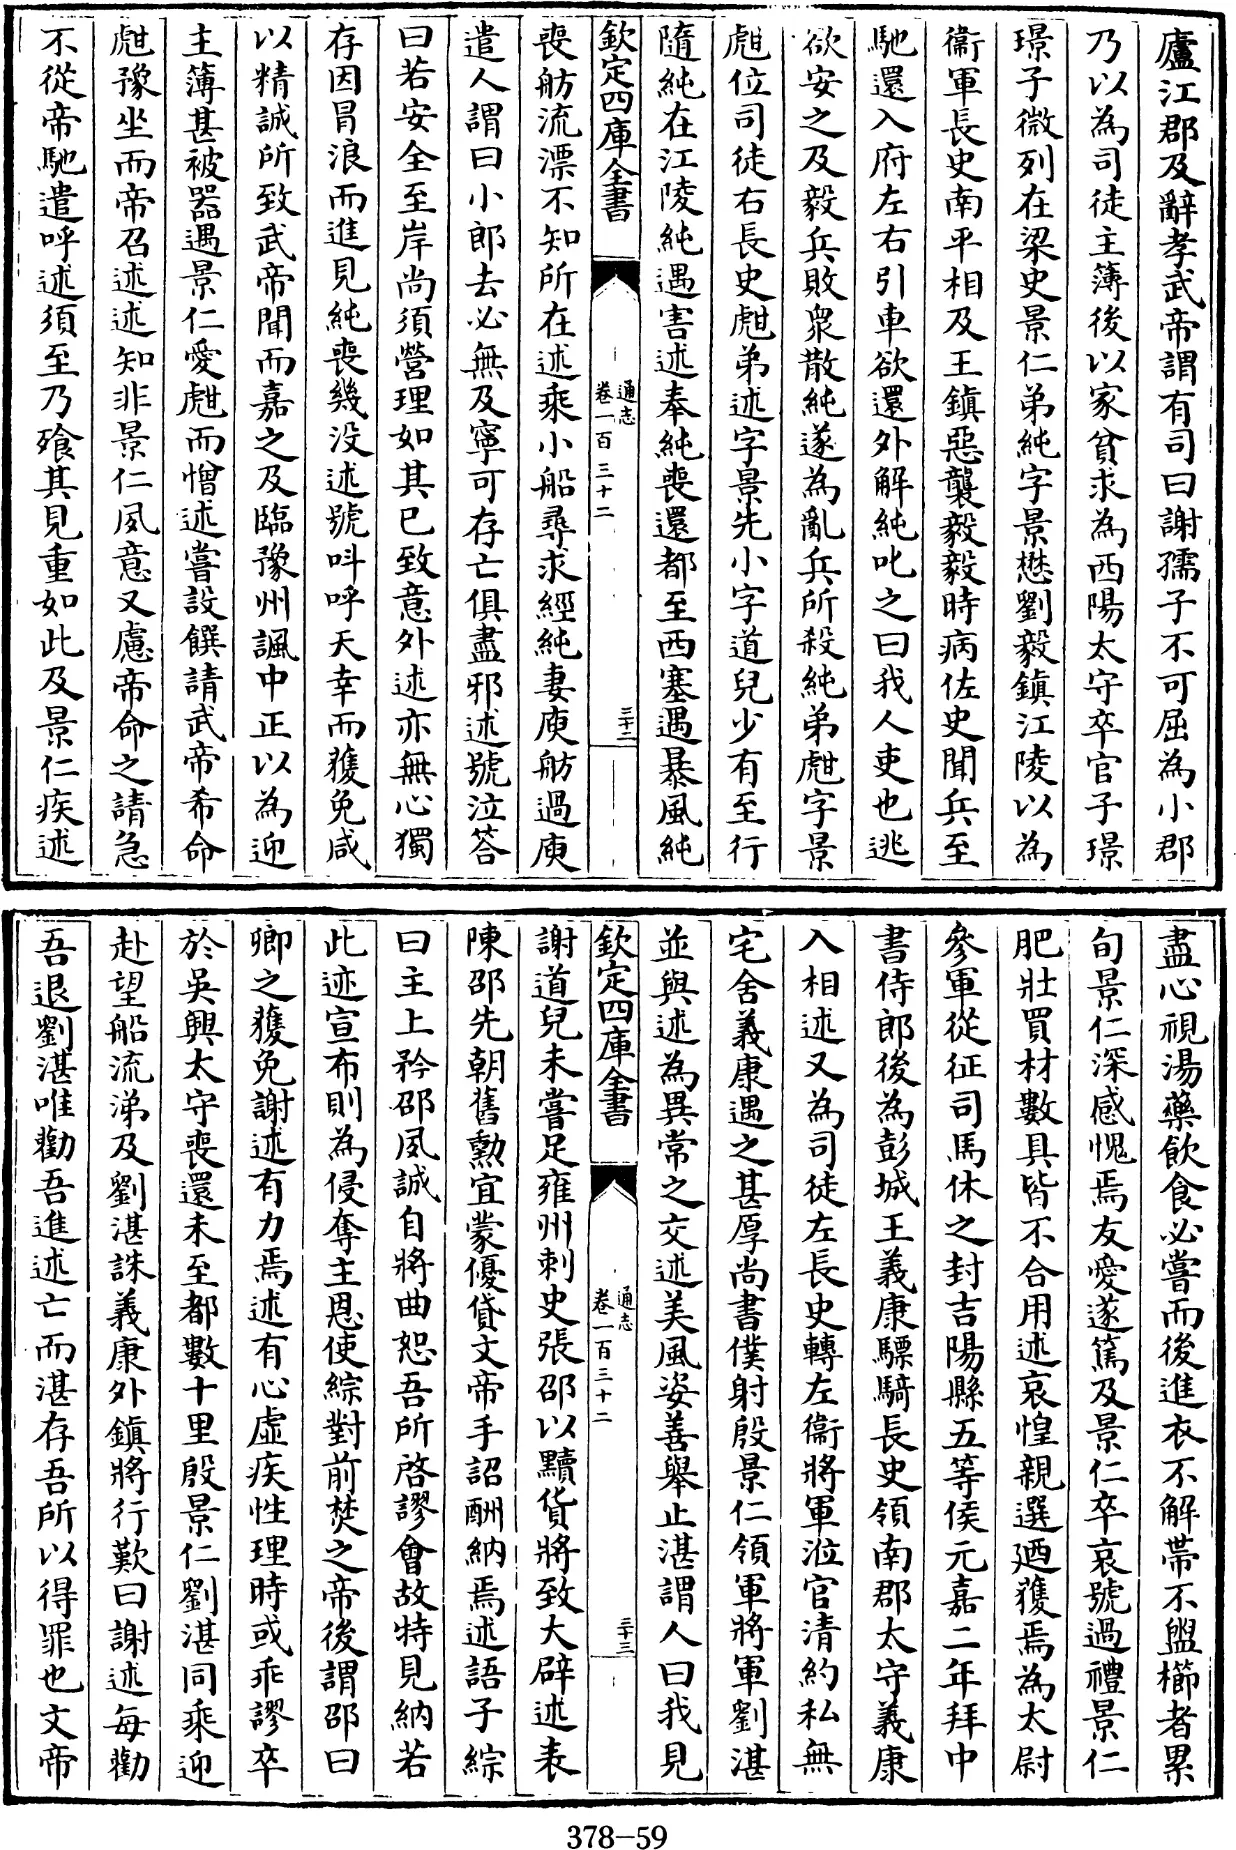 廬江郡及辭孝武帝謂有司曰謝孺子不可屈為小郡
乃以為司徒主薄後以家貧求為西陽太守卒官子璟
璟子微列在梁史景仁弟純字景懋劉毅鎮江陵以為
衞軍長史南平相及王鎮惡襲毅毅時病佐史聞兵至
馳還入府左右引車欲還外解純叱之曰我人吏也逃
欲安之及毅兵敗衆散純遂為亂兵所殺純弟甝字景
甝位司徒右長史甝弟述字景先小字道兒少有至行
隨純在江陵純遇害述奉純喪還都至西塞遇暴風純
欽定四庫全書
通志
卷一百三十二
三十二
喪舫流漂不知所在述乘小船尋求經純妻庾舫過庾
遣人謂曰小郎去必無及寧可存亡俱盡邪述號泣答
曰若安全至岸尚須營理如其已致意外述亦無心獨
存因冒浪而進見純喪幾没述號叫呼天幸而獲免咸
以精誠所致武帝聞而嘉之及臨豫州諷中正以為迎
主薄甚被器遇景仁愛甝而憎述嘗設饌請武帝希命
甝豫坐而帝召述述知非景仁夙意又慮帝命之請急
不從帝馳遣呼述須至乃飱其見重如此及景仁疾述
盡心視湯藥飲食必嘗而後進衣不解帶不盥櫛者累
旬景仁深感愧焉友愛遂篤及景仁卒哀號過禮景仁
肥壯買材數具皆不合用述哀惶親選廼獲焉為太尉
參軍從征司馬休之封吉陽縣五等侯元嘉二年拜中
書侍郎後為彭城王義康驃騎長史領南郡太守義康
入相述又為司徒左長史轉左衞將軍涖官清約私無
宅舍義康遇之甚厚尚書僕射殷景仁領軍將軍劉湛
並與述為異常之交述美風姿善舉止湛謂人曰我見
欽定四庫全書
通志
卷一百三十二
三十三
謝道兒未嘗足雍州刺史張邵以黷貨將致大辟述表
陳邵先朝舊勳宜蒙優貸文帝手詔酬納焉述語子綜
曰主上矜邵夙誠自將曲恕吾所啓謬會故特見納若
此迹宣布則為侵奪主恩使綜對前焚之帝後謂邵曰
卿之獲免謝述有力焉述有心虛疾性理時或乖謬卒
於吳興太守喪還未至都數十里殷景仁劉湛同乘迎
赴望船流涕及劉湛誅義康外鎮將行歎曰謝述每勸
吾退劉湛唯勸吾進述亡而湛存吾所以得罪也文帝
378-59